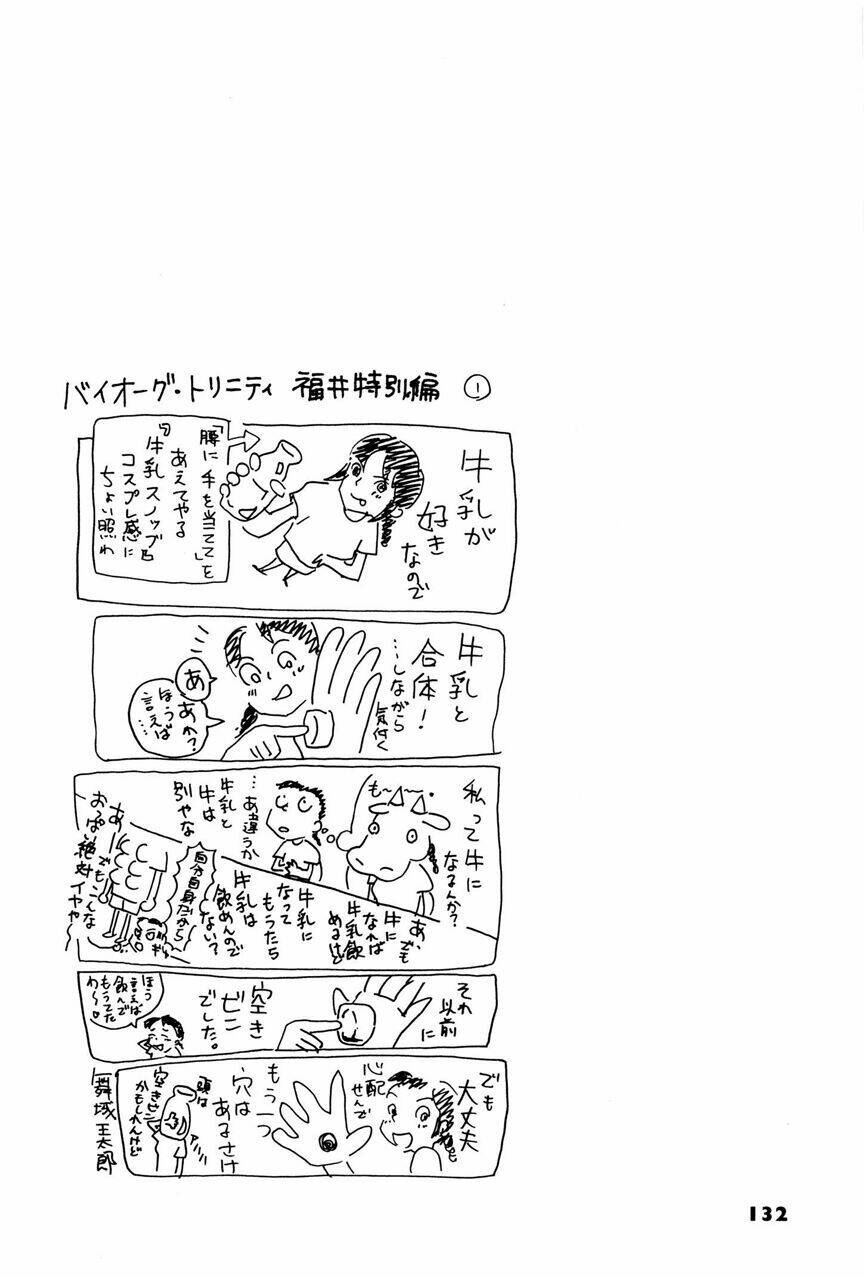 バイオーグ・トリニティ 福井特別編 ①
牛乳が
好き
なので
「腰に手を当てて」を
あえてやる
『牛乳スノッブ』な
コスプレ感に
ちょい照れ
牛乳と
合体!
…しながら
気付く
あ
あれ?
ほうば
言えば…
私って牛に
なるんか?
も〜〜〜。
…あ違うか
牛乳と
牛は
別やな
あ、でも
牛に
なれば
牛乳飲
めるけど
牛乳に
なって
もうたら
牛乳は
飲めんので
ない?
自分自身だから
あー
でもこんな
おっぱい絶対イヤや
それ
以前
に
空き
ビン
でした。
ほう
言えば
飲んで
もうてた
わ〜♡
でも
大丈夫
心配
せんで
もう一つ
穴は
あるさけ
頭は
空きビン
かもしれんけど
舞城王太郎
132